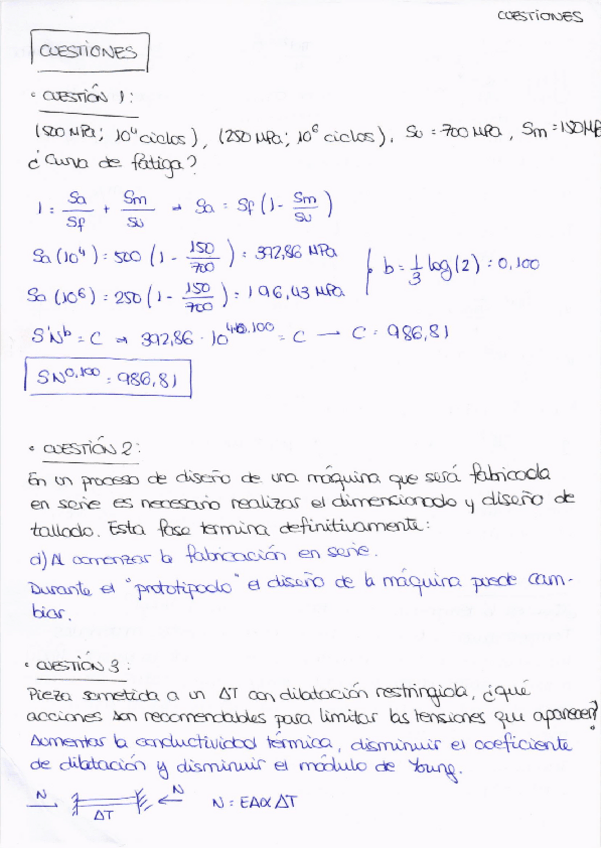 CUESTIONES
CUESTIONES
• CUESTIÓN 1:
(500 MPa; 10⁴ ciclos), (250 MPa; 10⁶ ciclos), Su = 700 MPa, Sm = 150 MP
¿Curva de fatiga?
1 = Sa/Sf + Sm/Su → Sa = Sf (1 - Sm/Su)
Sa (10⁴) = 500 (1 - 150/700) = 392,86 MPa
b = 1/3 log(2) = 0,100
Sa (10⁶) = 250 (1 - 150/700) = 196,43 MPa
S'Nᵇ = C → 392,86 · 10^4·0,100 = C → C = 986,81
SN^0,100 = 986,81
• CUESTIÓN 2:
En un proceso de diseño de una máquina que será fabricada
en serie es necesario realizar el dimensionado y diseño de
tallado. Esta fase termina definitivamente:
d) Al comenzar la fabricación en serie.
Durante el "prototipado" el diseño de la máquina puede cam-
biar.
• CUESTIÓN 3:
Pieza sometida a un ΔT con dilatación restringida, ¿qué
acciones son recomendables para limitar las tensiones que aparecen?
Aumentar la conductividad térmica, disminuir el coeficiente
de dilatación y disminuir el módulo de Young.
N N N = EAα ΔT
ΔT